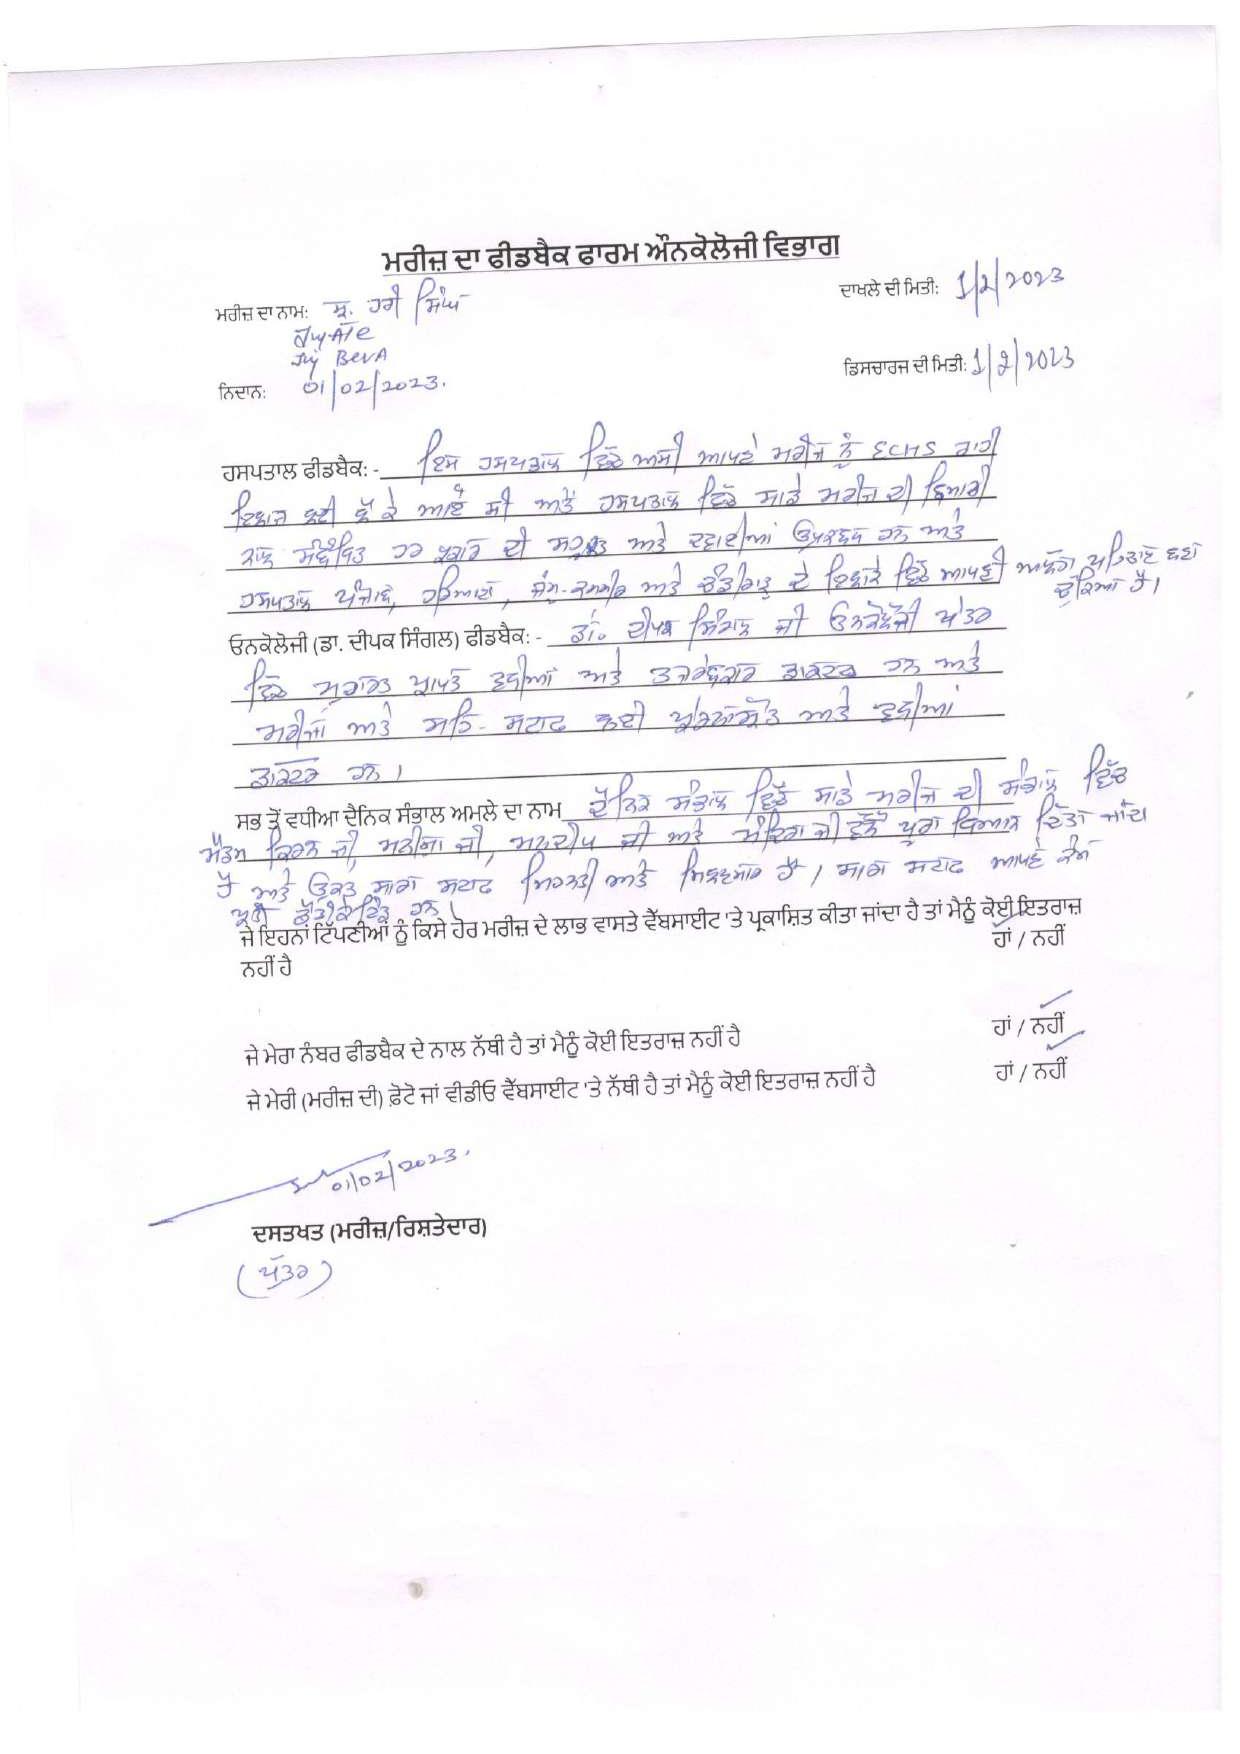 ਮਰੀਜ਼ ਦਾ ਫੀਡਬੈਕ ਫਾਰਮ ਔਨਕੋਲੋਜੀ ਵਿਭਾਗ
ਮਰੀਜ਼ ਦਾ ਨਾਮ: ਸ੍ਰ. ਹਰੀ ਸਿੰਘ
ਦਾਖਲੇ ਦੀ ਮਿਤੀ: 1/2/2023
Inj Beva
ਨਿਦਾਨ: 01/02/2023.
ਡਿਸਚਾਰਜ ਦੀ ਮਿਤੀ: 1/2/2023
ਹਸਪਤਾਲ ਫੀਡਬੈਕ: - ਇਸ ਹਸਪਤਾਲ ਵਿੱਚ ਅਸੀ ਆਪਣੇ ਮਰੀਜ ਨੂੰ ECHS ਰਾਹੀ
ਇਲਾਜ ਲਈ ਲੈ ਕੇ ਆਏ ਸੀ ਅਤੇ ਹਸਪਤਾਲ ਵਿੱਚ ਸਾਡੇ ਮਰੀਜ ਦੀ ਬਿਮਾਰੀ
ਨਾਲ ਸੰਬੰਧਿਤ ਹਰ ਪ੍ਰਕਾਰ ਦੀ ਸਹੂਲਤ ਅਤੇ ਦਵਾਈਆਂ ਉਪਲਬਧ ਹਨ ਅਤੇ
ਹਸਪਤਾਲ ਪੰਜਾਬ, ਹਰਿਆਣਾ, ਜੰਮੂ-ਕਸ਼ਮੀਰ ਅਤੇ ਚੰਡੀਗੜ੍ਹ ਦੇ ਇਲਾਕੇ ਵਿੱਚ ਆਪਣੀ ਅਲੱਗ ਪਹਿਚਾਣ ਬਣਾ
ਚੁੱਕਿਆ ਹੈ।
ਓਨਕੋਲੋਜੀ (ਡਾ. ਦੀਪਕ ਸਿੰਗਲ) ਫੀਡਬੈਕ: - ਡਾ. ਦੀਪਕ ਸਿੰਗਲ ਜੀ ਓਨਕੋਲੋਜੀ ਖੇਤਰ
ਵਿੱਚ ਮੁਹਾਰਤ ਪ੍ਰਾਪਤ ਵਧੀਆ ਅਤੇ ਤਜਰਬੇਕਾਰ ਡਾਕਟਰ ਹਨ ਅਤੇ
ਮਰੀਜਾਂ ਅਤੇ ਸਹਿ-ਸਟਾਫ ਲਈ ਅਤੇ ਵਧੀਆ
ਡਾਕਟਰ ਹਨ।
ਸਭ ਤੋਂ ਵਧੀਆ ਦੈਨਿਕ ਸੰਭਾਲ ਅਮਲੇ ਦਾ ਨਾਮ ਦੈਨਿਕ ਸੰਭਾਲ ਵਿੱਚ ਸਾਡੇ ਮਰੀਜ ਦੀ ਸੰਭਾਲ ਵਿੱਚ
ਮੈਡਮ ਕਿਰਨ ਜੀ, ਮਨੀਸ਼ਾ ਜੀ, ਮਨਦੀਪ ਜੀ ਅਤੇ ਜੀ ਵੱਲੋਂ ਪੂਰਾ ਧਿਆਨ ਦਿੱਤਾ ਜਾਂਦਾ
ਹੈ ਅਤੇ ਉਕਤ ਸਾਰਾ ਸਟਾਫ ਮਿਹਨਤੀ ਅਤੇ ਮਿਲਣਸਾਰ ਹੈ। ਸਾਰਾ ਸਟਾਫ ਆਪਣੇ ਕੰਮ
ਪ੍ਰਤੀ ਹਨ।
ਜੇ ਇਹਨਾਂ ਟਿੱਪਣੀਆਂ ਨੂੰ ਕਿਸੇ ਹੋਰ ਮਰੀਜ਼ ਦੇ ਲਾਭ ਵਾਸਤੇ ਵੈੱਬਸਾਈਟ 'ਤੇ ਪ੍ਰਕਾਸ਼ਿਤ ਕੀਤਾ ਜਾਂਦਾ ਹੈ ਤਾਂ ਮੈਨੂੰ ਕੋਈ ਇਤਰਾਜ਼
ਨਹੀਂ ਹੈ ਹਾਂ / ਨਹੀਂ
ਜੇ ਮੇਰਾ ਨੰਬਰ ਫੀਡਬੈਕ ਦੇ ਨਾਲ ਨੱਥੀ ਹੈ ਤਾਂ ਮੈਨੂੰ ਕੋਈ ਇਤਰਾਜ਼ ਨਹੀਂ ਹੈ ਹਾਂ / ਨਹੀਂ
ਜੇ ਮੇਰੀ (ਮਰੀਜ਼ ਦੀ) ਫ਼ੋਟੋ ਜਾਂ ਵੀਡੀਓ ਵੈੱਬਸਾਈਟ 'ਤੇ ਨੱਥੀ ਹੈ ਤਾਂ ਮੈਨੂੰ ਕੋਈ ਇਤਰਾਜ਼ ਨਹੀਂ ਹੈ ਹਾਂ / ਨਹੀਂ
01/02/2023.
ਦਸਤਖਤ (ਮਰੀਜ਼/ਰਿਸ਼ਤੇਦਾਰ)
(ਪੁੱਤਰ)